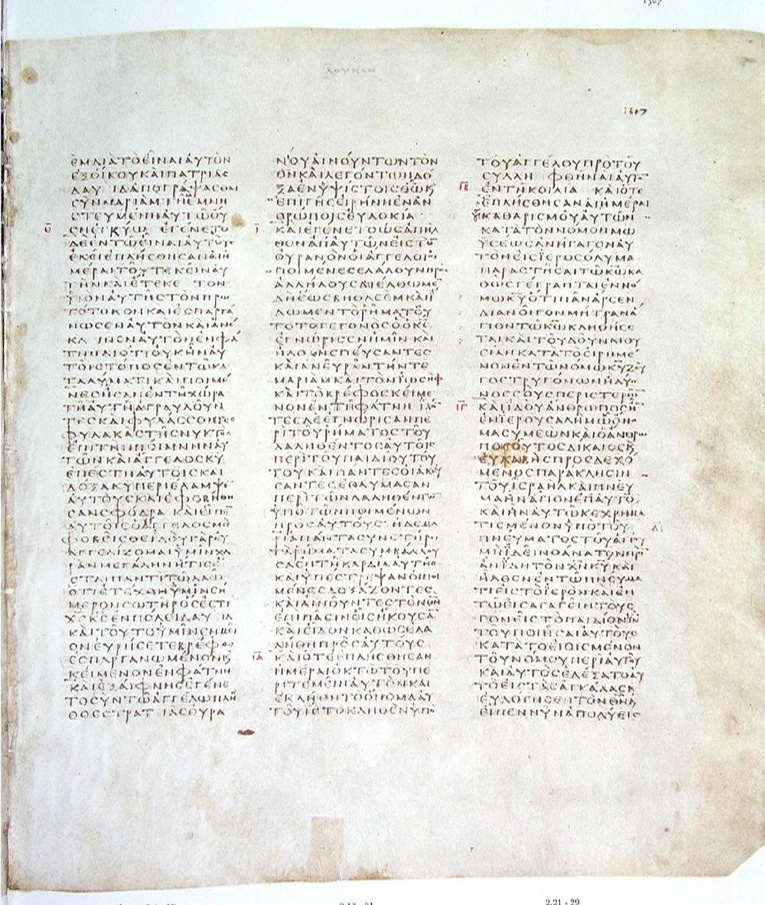 ΛΟΥΚΑΝ
1307
ΕΜΔΙΑΤΟΕΙΝΑΙΑΥΤΟΝ
ΕΞΟΙΚΟΥΚΑΙΠΑΤΡΙΑΣ
ΔΑΥΙΔΑΠΟΓΡΑΨΑΣΘΑΙ
ΣΥΝΜΑΡΙΑΜΤΗΕΜΝΗ
ΣΤΕΥΜΕΝΗΑΥΤΩΟΥ
ΣΗΕΓΚΥΩ ΕΓΕΝΕΤΟ
ΔΕΕΝΤΩΕΙΝΑΙΑΥΤΟΥΣ
ΕΚΕΙΕΠΛΗΣΘΗΣΑΝΑΙΗ
ΜΕΡΑΙΤΟΥΤΕΚΕΙΝΑΥ
ΤΗΝΚΑΙΕΤΕΚΕ ΤΟΝ
ΥΙΟΝΑΥΤΗΣΤΟΝΠΡΩ
ΤΟΤΟΚΟΝΚΑΙΕΣΠΑΡΓΑ
ΝΩΣΕΝΑΥΤΟΝΚΑΙΑΝΕ
ΚΛΙΝΕΝΑΥΤΟΝΕΝΦΑ
ΤΝΗΔΙΟΤΙΟΥΚΗΝΑΥ
ΤΟΙΣΤΟΠΟΣΕΝΤΩΚΑ
ΤΑΛΥΜΑΤΙΚΑΙΠΟΙΜΕ
ΝΕΣΗΣΑΝΕΝΤΗΧΩΡΑ
ΤΗΑΥΤΗΑΓΡΑΥΛΟΥΝ
ΤΕΣΚΑΙΦΥΛΑΣΣΟΝΤΕΣ
ΦΥΛΑΚΑΣΤΗΣΝΥΚΤΟΣ
ΕΠΙΤΗΝΠΟΙΜΝΗΝΑΥ
ΤΩΝΚΑΙΑΓΓΕΛΟΣΚΥ
ΕΠΕΣΤΗΑΥΤΟΙΣΚΑΙ
ΔΟΞΑΚΥΠΕΡΙΕΛΑΜΨΕ
ΑΥΤΟΥΣΚΑΙΕΦΟΒΗΘΗ
ΣΑΝΣΦΟΔΡΑ ΚΑΙΕΙΠΕ
ΑΥΤΟΙΣΟΑΓΓΕΛΟΣΜΗ
ΦΟΒΕΙΣΘΕΙΔΟΥΓΑΡΕΥ
ΑΓΓΕΛΙΖΟΜΑΙΥΜΙΝΧΑ
ΡΑΝΜΕΓΑΛΗΝΗΤΙΣΕ
ΣΤΑΙΠΑΝΤΙΤΩΛΑΩ
ΟΤΙΕΤΕΧΘΗΥΜΙΝΣΗ
ΜΕΡΟΝΣΩΤΗΡΟΣΕΣΤΙ
ΧΣΚΣΕΝΠΟΛΕΙΔΑΥΙΔ
ΚΑΙΤΟΥΤΟΥΜΙΝΣΗΜΕΙ
ΟΝΕΥΡΗΣΕΤΕΒΡΕΦΟΣ
ΕΣΠΑΡΓΑΝΩΜΕΝΟΝΚ
ΚΕΙΜΕΝΟΝΕΝΦΑΤΝΗ
ΚΑΙΕΞΑΙΦΝΗΣΕΓΕΝΕ
ΤΟΣΥΝΤΩΑΓΓΕΛΩΠΛΗ
ΘΟΣΣΤΡΑΤΙΑΣΟΥΡΑ
ΝΟΥΑΙΝΟΥΝΤΩΝΤΟΝ
ΘΝΚΑΙΛΕΓΟΝΤΩΝΔΟ
ΞΑΕΝΥΨΙΣΤΟΙΣΘΩΚ
ΕΠΙΓΗΣΕΙΡΗΝΗΕΝΑΝ
ΘΡΩΠΟΙΣΕΥΔΟΚΙΑ
ΚΑΙΕΓΕΝΕΤΟΩΣΑΠΗΛ
ΘΟΝΑΠΑΥΤΩΝΕΙΣΤΟ
ΟΥΡΑΝΟΝΟΙΑΓΓΕΛΟΙΟΙ
ΠΟΙΜΕΝΕΣΕΛΑΛΟΥΝΠΡ
ΑΛΛΗΛΟΥΣΔΙΕΛΘΩΜΕ
ΔΗΕΩΣΒΗΘΛΕΕΜΚΑΙΙ
ΔΩΜΕΝΤΟΡΗΜΑΤΟΥ
ΤΟΤΟΓΕΓΟΝΟΣΟΟΚΣ
ΕΓΝΩΡΙΣΕΝΗΜΙΝ ΚΑΙ
ΗΛΘΟΝΣΠΕΥΣΑΝΤΕΣ
ΚΑΙΑΝΕΥΡΑΝΤΗΝΤΕ
ΜΑΡΙΑΜΚΑΙΤΟΝΙΩΣΗΦ
ΚΑΙΤΟΒΡΕΦΟΣΚΕΙΜΕ
ΝΟΝΕΝΤΗΦΑΤΝΗ ΙΔΟ
ΤΕΣΔΕΕΓΝΩΡΙΣΑΝΠΕ
ΡΙΤΟΥΡΗΜΑΤΟΣΤΟΥ
ΛΑΛΗΘΕΝΤΟΣΑΥΤΟΙΣ
ΠΕΡΙΤΟΥΠΑΙΔΙΟΥΤΟΥ
ΤΟΥΚΑΙΠΑΝΤΕΣΟΙΑΚΟΥ
ΣΑΝΤΕΣΕΘΑΥΜΑΣΑΝ
ΠΕΡΙΤΩΝΛΑΛΗΘΕΝΤΩ
ΥΠΟΤΩΝΠΟΙΜΕΝΩΝ
ΠΡΟΣΑΥΤΟΥΣ ΗΔΕΜΑ
ΡΙΑΠΑΝΤΑΣΥΝΕΤΗΡΕΙ
ΤΑΡΗΜΑΤΑΣΥΜΒΑΛΛΟΥ
ΣΑΕΝΤΗΚΑΡΔΙΑΑΥΤΗΣ
ΚΑΙΥΠΕΣΤΡΕΨΑΝΟΙΠΟΙ
ΜΕΝΕΣΔΟΞΑΖΟΝΤΕΣ
ΚΑΙΑΙΝΟΥΝΤΕΣΤΟΝΘΝ
ΕΠΙΠΑΣΙΝΟΙΣΗΚΟΥΣΑ
ΚΑΙΕΙΔΟΝΚΑΘΩΣΕΛΑ
ΛΗΘΗΠΡΟΣΑΥΤΟΥΣ
ΚΑΙΟΤΕΕΠΛΗΣΘΗΣΑΝ
ΗΜΕΡΑΙΟΚΤΩΤΟΥΠΕ
ΡΙΤΕΜΕΙΝΑΥΤΟΝΚΑΙ
ΕΚΛΗΘΗΤΟΟΝΟΜΑΑΥ
ΤΟΥΙΣΤΟΚΛΗΘΕΝΥΠΟ
ΤΟΥΑΓΓΕΛΟΥΠΡΟΤΟΥ
ΣΥΛΛΗΜΦΘΗΝΑΙΑΥΤ
ΕΝΤΗΚΟΙΛΙΑ ΚΑΙΟΤΕ
ΕΠΛΗΣΘΗΣΑΝΑΙΗΜΕΡΑΙ
ΤΟΥΚΑΘΑΡΙΣΜΟΥΑΥΤΩΝ
ΚΑΤΑΤΟΝΝΟΜΟΝΜΩ
ΥΣΕΩΣΑΝΗΓΑΓΟΝΑΥ
ΤΟΝΕΙΣΙΕΡΟΣΟΛΥΜΑ
ΠΑΡΑΣΤΗΣΑΙΤΩΚΩΚΑ
ΘΩΣΓΕΓΡΑΠΤΑΙΕΝΝΟ
ΜΩΚΥΟΤΙΠΑΝΑΡΣΕΝ
ΔΙΑΝΟΙΓΟΝΜΗΤΡΑΝΑ
ΓΙΟΝΤΩΚΩΚΛΗΘΗΣΕ
ΤΑΙΚΑΙΤΟΥΔΟΥΝΑΙΘΥ
ΣΙΑΝΚΑΤΑΤΟΕΙΡΗΜΕ
ΝΟΝΕΝΤΩΝΟΜΩΚΥΖΕΥ
ΓΟΣΤΡΥΓΟΝΩΝΗΔΥΟ
ΝΟΣΣΟΥΣΠΕΡΙΣΤΕΡΩ
ΚΑΙΙΔΟΥΑΝΘΡΩΠΟΣΗ
ΕΝΙΕΡΟΥΣΑΛΗΜΩΟΝΟ
ΜΑΣΥΜΕΩΝΚΑΙΟΑΝΘΡ
ΠΟΣΟΥΤΟΣΔΙΚΑΙΟΣΚ
ΕΥΛΑΒΗΣΠΡΟΣΔΕΧΟ
ΜΕΝΟΣΠΑΡΑΚΛΗΣΙΝ
ΤΟΥΙΣΡΑΗΛΚΑΙΠΝΕΥ
ΜΑΗΝΑΓΙΟΝΕΠΑΥΤΟ
ΚΑΙΗΝΑΥΤΩΚΕΧΡΗΜΑ
ΤΙΣΜΕΝΟΝΥΠΟΤΟΥ
ΠΝΕΥΜΑΤΟΣΤΟΥΑΓΙΟΥ
ΜΗΙΔΕΙΝΘΑΝΑΤΟΝΠΡΙΝ
ΑΝΙΔΗΤΟΝΧΝΚΥΚΑΙ
ΗΛΘΕΝΕΝΤΩΠΝΕΥΜΑ
ΤΙΕΙΣΤΟΙΕΡΟΝΚΑΙΕΝ
ΤΩΕΙΣΑΓΑΓΕΙΝΤΟΥΣ
ΓΟΝΕΙΣΤΟΠΑΙΔΙΟΝΙΝ
ΤΟΥΠΟΙΗΣΑΙΑΥΤΟΥΣ
ΚΑΤΑΤΟΕΙΘΙΣΜΕΝΟΝ
ΤΟΥΝΟΜΟΥΠΕΡΙΑΥΤΟΥ
ΚΑΙΑΥΤΟΣΕΔΕΞΑΤΟΑΥ
ΤΟΕΙΣΤΑΣΑΓΚΑΛΑΣΚ
ΕΥΛΟΓΗΣΕΝΤΟΝΘΝΚ
ΕΙΠΕΝΝΥΝΑΠΟΛΥΕΙΣ
2.21 - 29